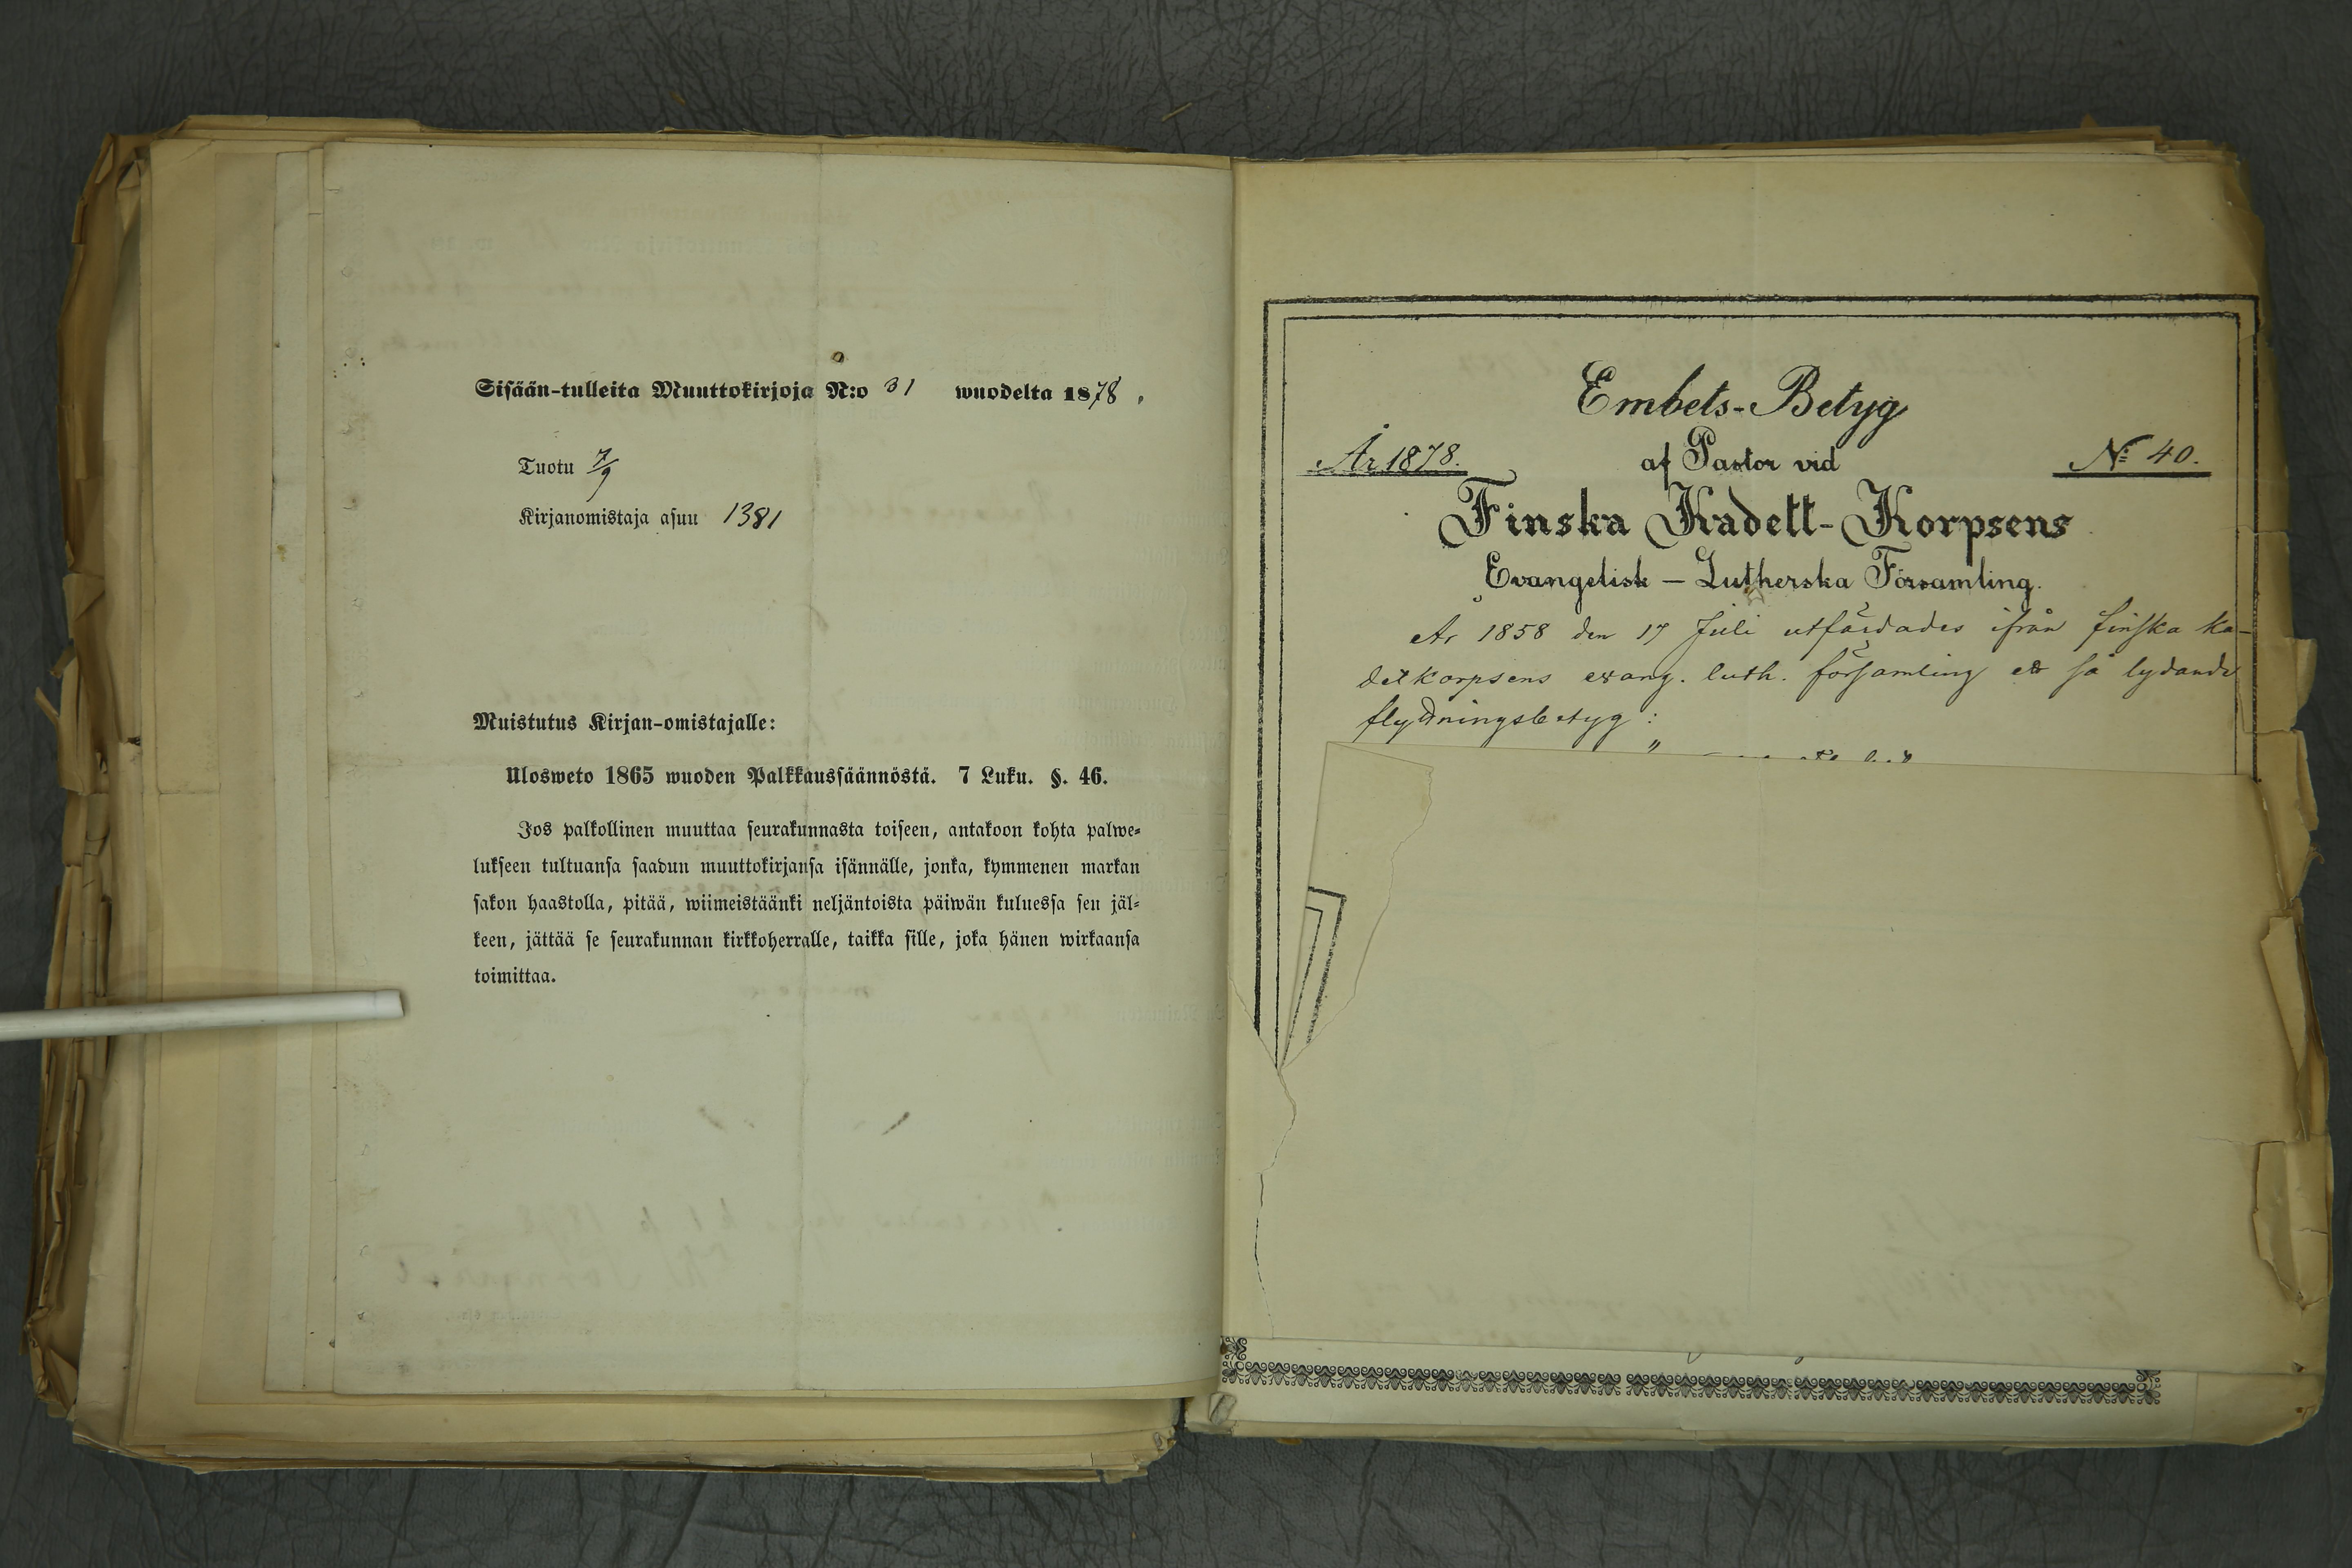 Sisään-tulleita Muuttokirjoja N:o 31 wuodelta 1878.
Tuotu 7/9
Kirjanomistaja asuu 1381
Muistutus Kirjan-omistajalle:
Ulosweto 1865 wuoden Palkkaussäännöstä. 7 Luku. §. 46.
Jos palkollinen muuttaa seurakunnasta toiseen, antakoon kohta palwe-
lukseen tultuansa saadun muuttokirjansa isännälle, jonka, kymmenen markan
sakon haastolla, pitää, wiimeistäänki neljäntoista päiwän kuluessa sen jäl-
keen, jättää se seurakunnan kirkkoherralle, taikka sille, joka hänen wirkaansa
toimittaa.
Embets-Betyg
År 1878. af Pastor vid No 40.
Finska Kadett-Korpsens
Evangelisk - Lutherska Församling.
År 1858 den 17 Juli utfärdades ifrån finska ka-
detkorpsens evang. luth. församling ett så lydande
flyttningsbetyg: